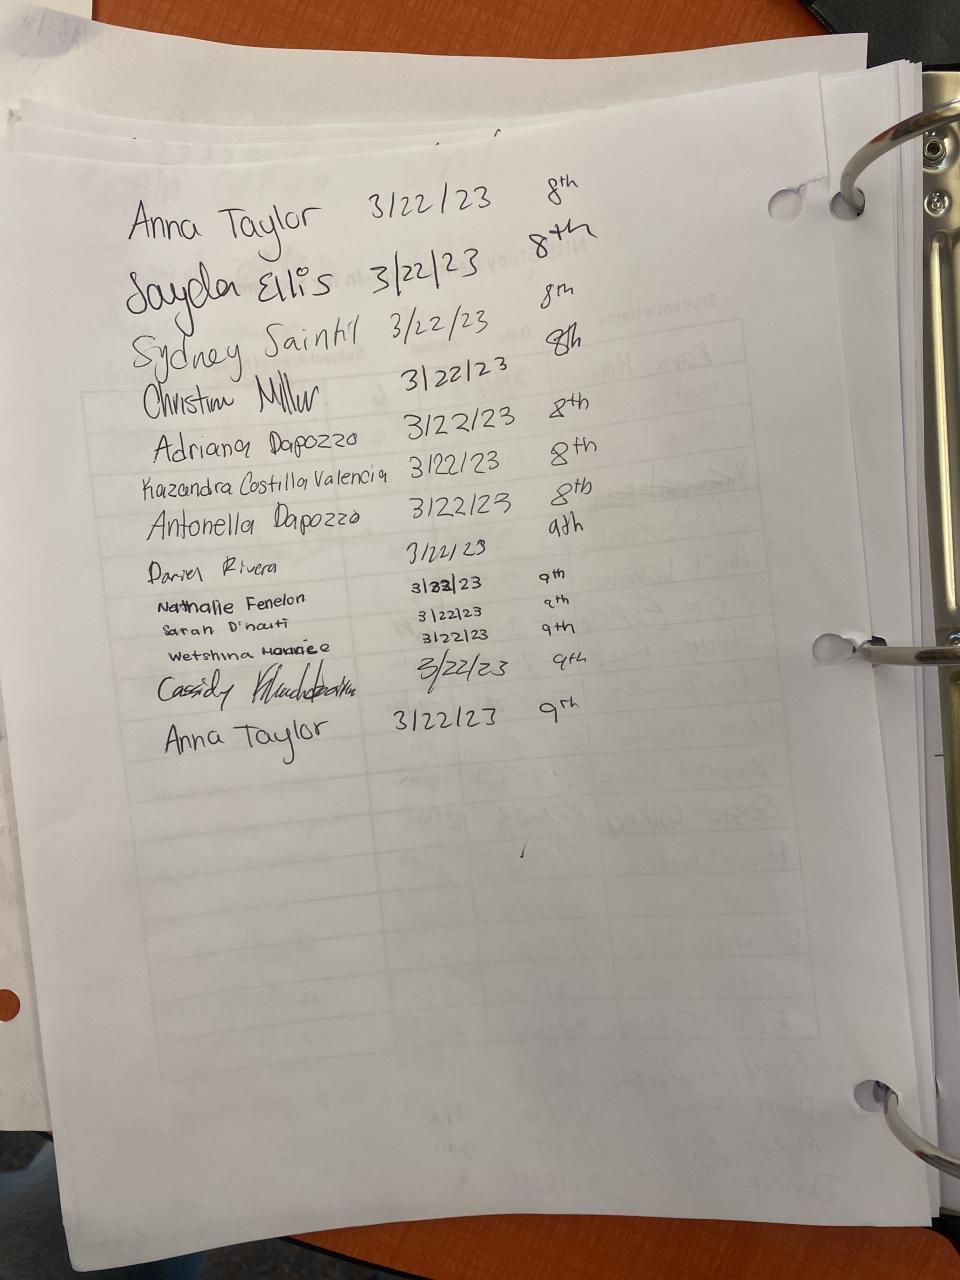 Anna Taylor 3/22/23 8th
Jayda Ellis 3/22/23 8th
Sydney Saintil 3/22/23 8th
Christina Miller 3/22/23 8th
Adriana Dapozzo 3/22/23 8th
Kazandra Costilla Valencia 3/22/23 8th
Antonella Dapozzo 3/22/23 8th
Daniel Rivera 3/22/23 9th
Nathalie Fenelon 3/22/23 9th
Sarah D'haiti 3/22/23 9th
Wetshina Maurice 3/22/23 9th
Cassidy 3/22/23 9th
Anna Taylor 3/22/23 9th